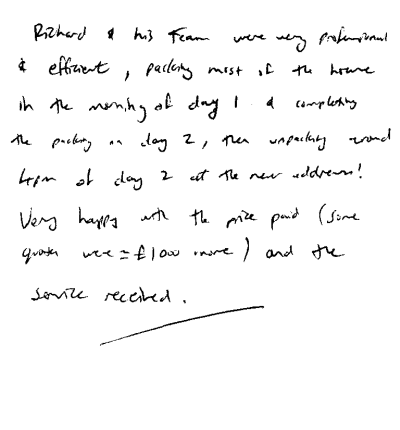 Richard & his Team were very professional
& efficient, packing most of the house
in the morning of day 1 & completing
the packing on day 2, then unpacking around
4pm of day 2 at the new address!
Very happy with the price paid (some
quotes were = £1000 more) and the
service received.